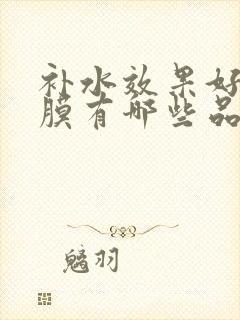 补水效果好
膜有哪些品
魑羽